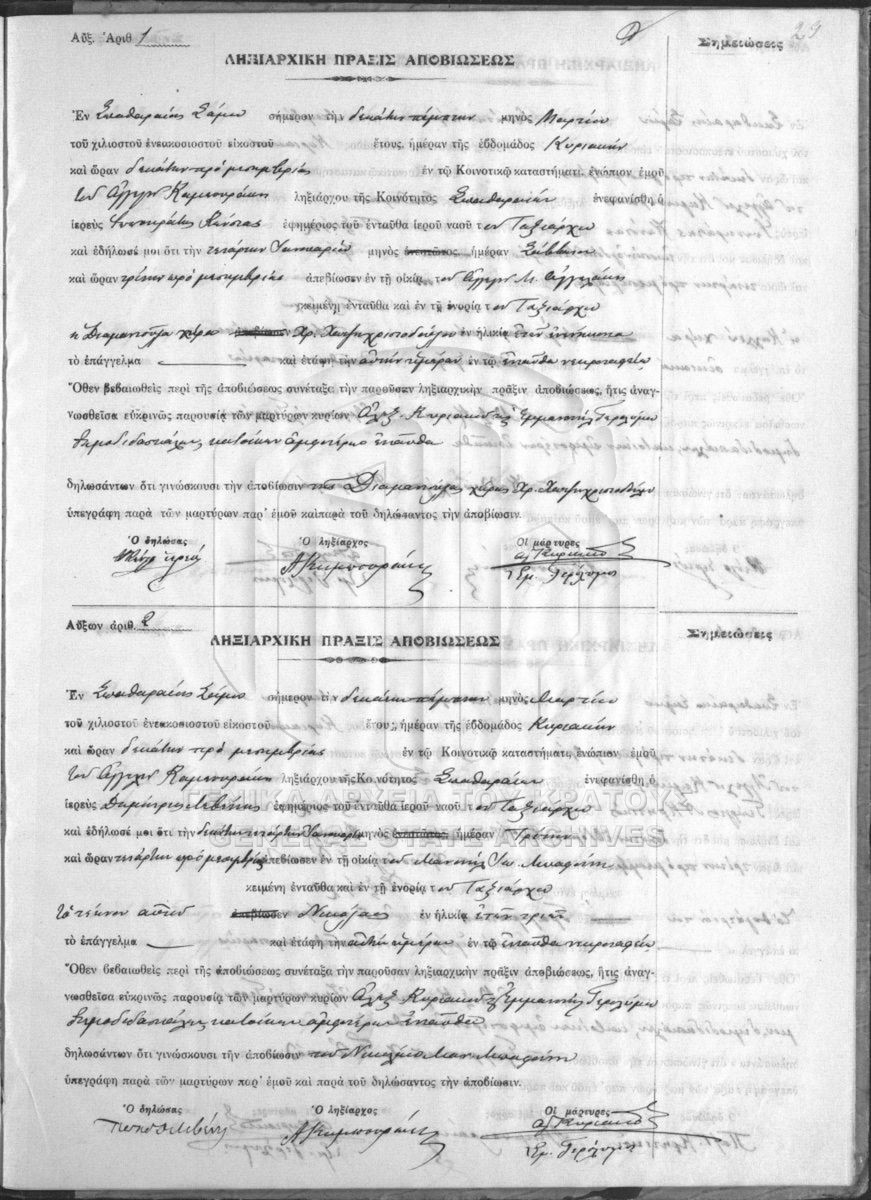 29
Αὔξ. Ἀριθ 1
Σημειώσεις
ΛΗΞΙΑΡΧΙΚΗ ΠΡΑΞΙΣ ΑΠΟΒΙΩΣΕΩΣ
Ἐν Σπαθαραίοις Σάμου σήμερον τὴν δεκάτην πέμπτην μηνὸς Μαρτίου
τοῦ χιλιοστοῦ ἐνεακοσιοστοῦ εἰκοστοῦ ἔτους, ἡμέραν τῆς ἑβδομάδος Κυριακὴν
καὶ ὥραν δεκάτην πρὸ μεσημβρίας ἐν τῷ Κοινοτικῷ καταστήματι, ἐνώπιον ἐμοῦ
τοῦ ληξιάρχου τῆς Κοινότητος Σπαθαραίων ἐνεφανίσθη ὁ
ἱερεὺς ἐφημέριος τοῦ ἐνταῦθα ἱεροῦ ναοῦ τῶν Ταξιαρχῶν
καὶ ἐδήλωσέ μοι ὅτι τὴν τετάρτην Ἰανουαρίου μηνὸς ἐνεστῶτος, ἡμέραν Σάββατον
καὶ ὥραν τρίτην πρὸ μεσημβρίας ἀπεβίωσεν ἐν τῇ οἰκίᾳ του Ἀγγελάκη
κειμένῃ ἐνταῦθα καὶ ἐν τῇ ἐνορίᾳ τῶν Ταξιαρχῶν
ἡ Διαμαντούλα χήρα ἀπεβίωσεν Χρ. Χατζηχριστοδούλου ἐν ἡλικίᾳ ἐτῶν ἐνενήκοντα
τὸ ἐπάγγελμα καὶ ἐτάφη τὴν αὐτὴν ἡμέραν ἐν τῷ ἐνταῦθα νεκροταφείῳ
Ὅθεν βεβαιωθεὶς περὶ τῆς ἀποβιώσεως συνέταξα τὴν παροῦσαν ληξιαρχικὴν πρᾶξιν ἀποβιώσεως, ἥτις ἀναγ-
νωσθεῖσα εὐκρινῶς παρουσίᾳ τῶν μαρτύρων κυρίων Ἀλεξ. Κυριακοῦ Ἐμμανουὴλ Γερολύμου
δημοδιδασκάλων κατοίκων ἀμφοτέρων ἐνταῦθα
δηλωσάντων ὅτι γινώσκουσι τὴν ἀποβίωσιν τῆς Διαμαντούλας χήρας Χρ. Χατζηχριστοδούλου
ὑπεγράφη παρὰ τῶν μαρτύρων παρ' ἐμοῦ καὶ παρὰ τοῦ δηλώσαντος τὴν ἀποβίωσιν.
Ὁ δηλώσας Ὁ ληξίαρχος Οἱ μάρτυρες
Αλ Κυριακοῦ
Ἐμ. Γερόλυμος
Αὔξων ἀριθ. 2
Σημειώσεις
ΛΗΞΙΑΡΧΙΚΗ ΠΡΑΞΙΣ ΑΠΟΒΙΩΣΕΩΣ
Ἐν Σπαθαραίοις Σάμου σήμερον τὴν δεκάτην πέμπτην μηνὸς Μαρτίου
τοῦ χιλιοστοῦ ἐνεακοσιοστοῦ εἰκοστοῦ ἔτους, ἡμέραν τῆς ἑβδομάδος Κυριακὴν
καὶ ὥραν δεκάτην πρὸ μεσημβρίας ἐν τῷ Κοινοτικῷ καταστήματι, ἐνώπιον ἐμοῦ
τοῦ ληξιάρχου τῆς Κοινότητος Σπαθαραίων ἐνεφανίσθη ὁ
ΓΕΝΙΚΑ ΑΡΧΕΙΑ ΤΟΥ ΚΡΑΤΟΥΣ
ἱερεὺς Δημήτριος ἐφημέριος τοῦ ἐνταῦθα ἱεροῦ ναοῦ τῶν Ταξιαρχῶν
GENERAL STATE ARCHIVES
καὶ ἐδήλωσέ μοι ὅτι τὴν δεκάτην τετάρτην Ἰανουαρίου μηνὸς ἐνεστῶτος, ἡμέραν Τρίτην
καὶ ὥραν τετάρτην πρὸ μεσημβρίας ἀπεβίωσεν ἐν τῇ οἰκίᾳ του
κειμένῃ ἐνταῦθα καὶ ἐν τῇ ἐνορίᾳ τῶν Ταξιαρχῶν
Τὸ τέκνον αὐτοῦ ἀπεβίωσεν Νικόλαος ἐν ἡλικίᾳ ἐτῶν τριῶν
τὸ ἐπάγγελμα καὶ ἐτάφη τὴν αὐτὴν ἡμέραν ἐν τῷ ἐνταῦθα νεκροταφείῳ
Ὅθεν βεβαιωθεὶς περὶ τῆς ἀποβιώσεως συνέταξα τὴν παροῦσαν ληξιαρχικὴν πρᾶξιν ἀποβιώσεως, ἥτις ἀναγ-
νωσθεῖσα εὐκρινῶς παρουσίᾳ τῶν μαρτύρων κυρίων Ἀλεξ Κυριακοῦ Ἐμμανουὴλ Γερολύμου
δημοδιδασκάλων κατοίκων ἀμφοτέρων ἐνταῦθα
δηλωσάντων ὅτι γινώσκουσι τὴν ἀποβίωσιν τοῦ Νικολάου
ὑπεγράφη παρὰ τῶν μαρτύρων παρ' ἐμοῦ καὶ παρὰ τοῦ δηλώσαντος τὴν ἀποβίωσιν.
Ὁ δηλώσας Ὁ ληξίαρχος Οἱ μάρτυρες
Αλ Κυριακοῦ
Ἐμ. Γερόλυμος